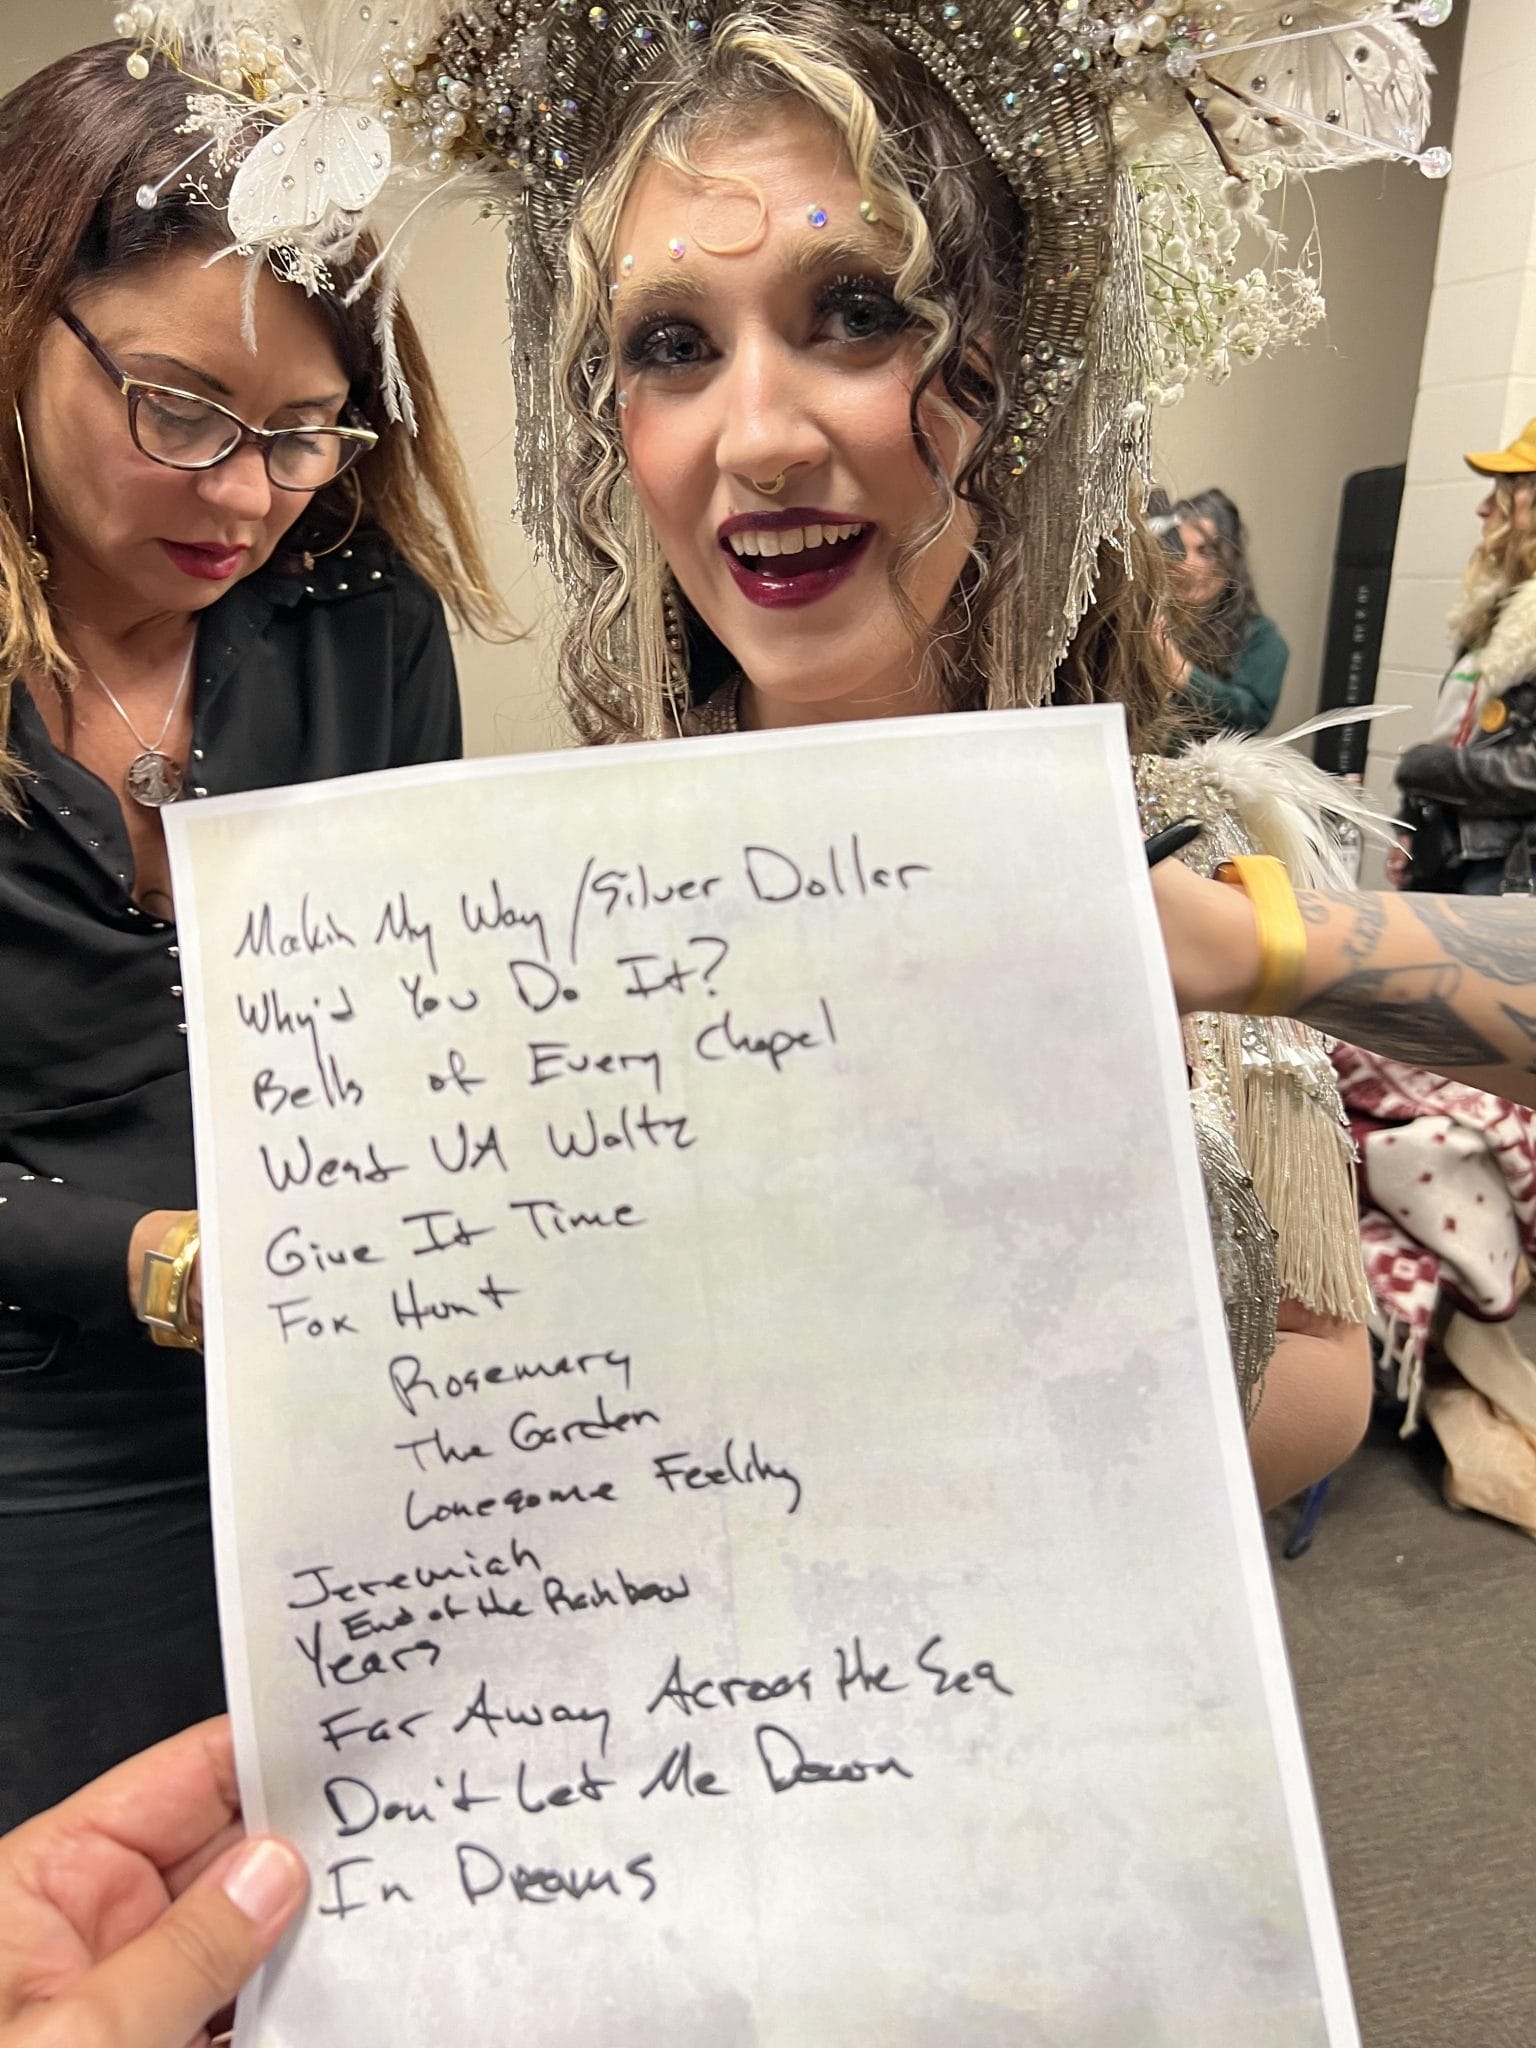 Makin My Way / Silver Doller
Why'd You Do It?
Bells of Every Chapel
West VA Waltz
Give It Time
Fox Hunt
Rosemary
The Garden
Lonesome Feeling
Jeremiah
Y End of the Rainbow
Years
Far Away Across the Sea
Don't Let Me Down
In Dreams